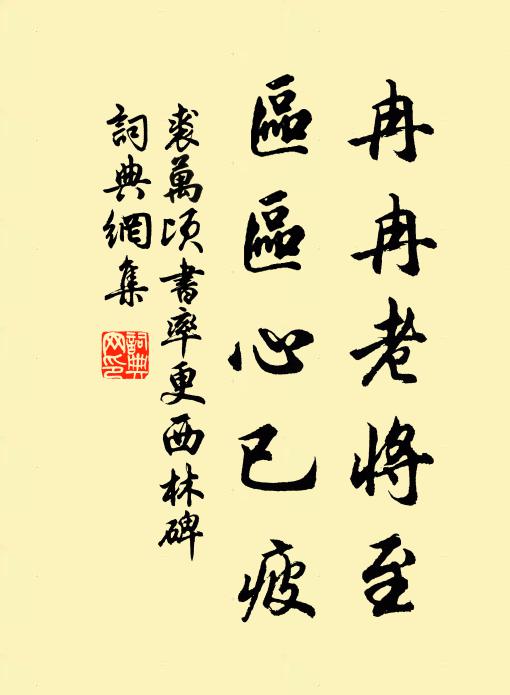 冉冉老將至
區區心已疲
裘萬頃書率更西林碑
詞典網集
詞典網印